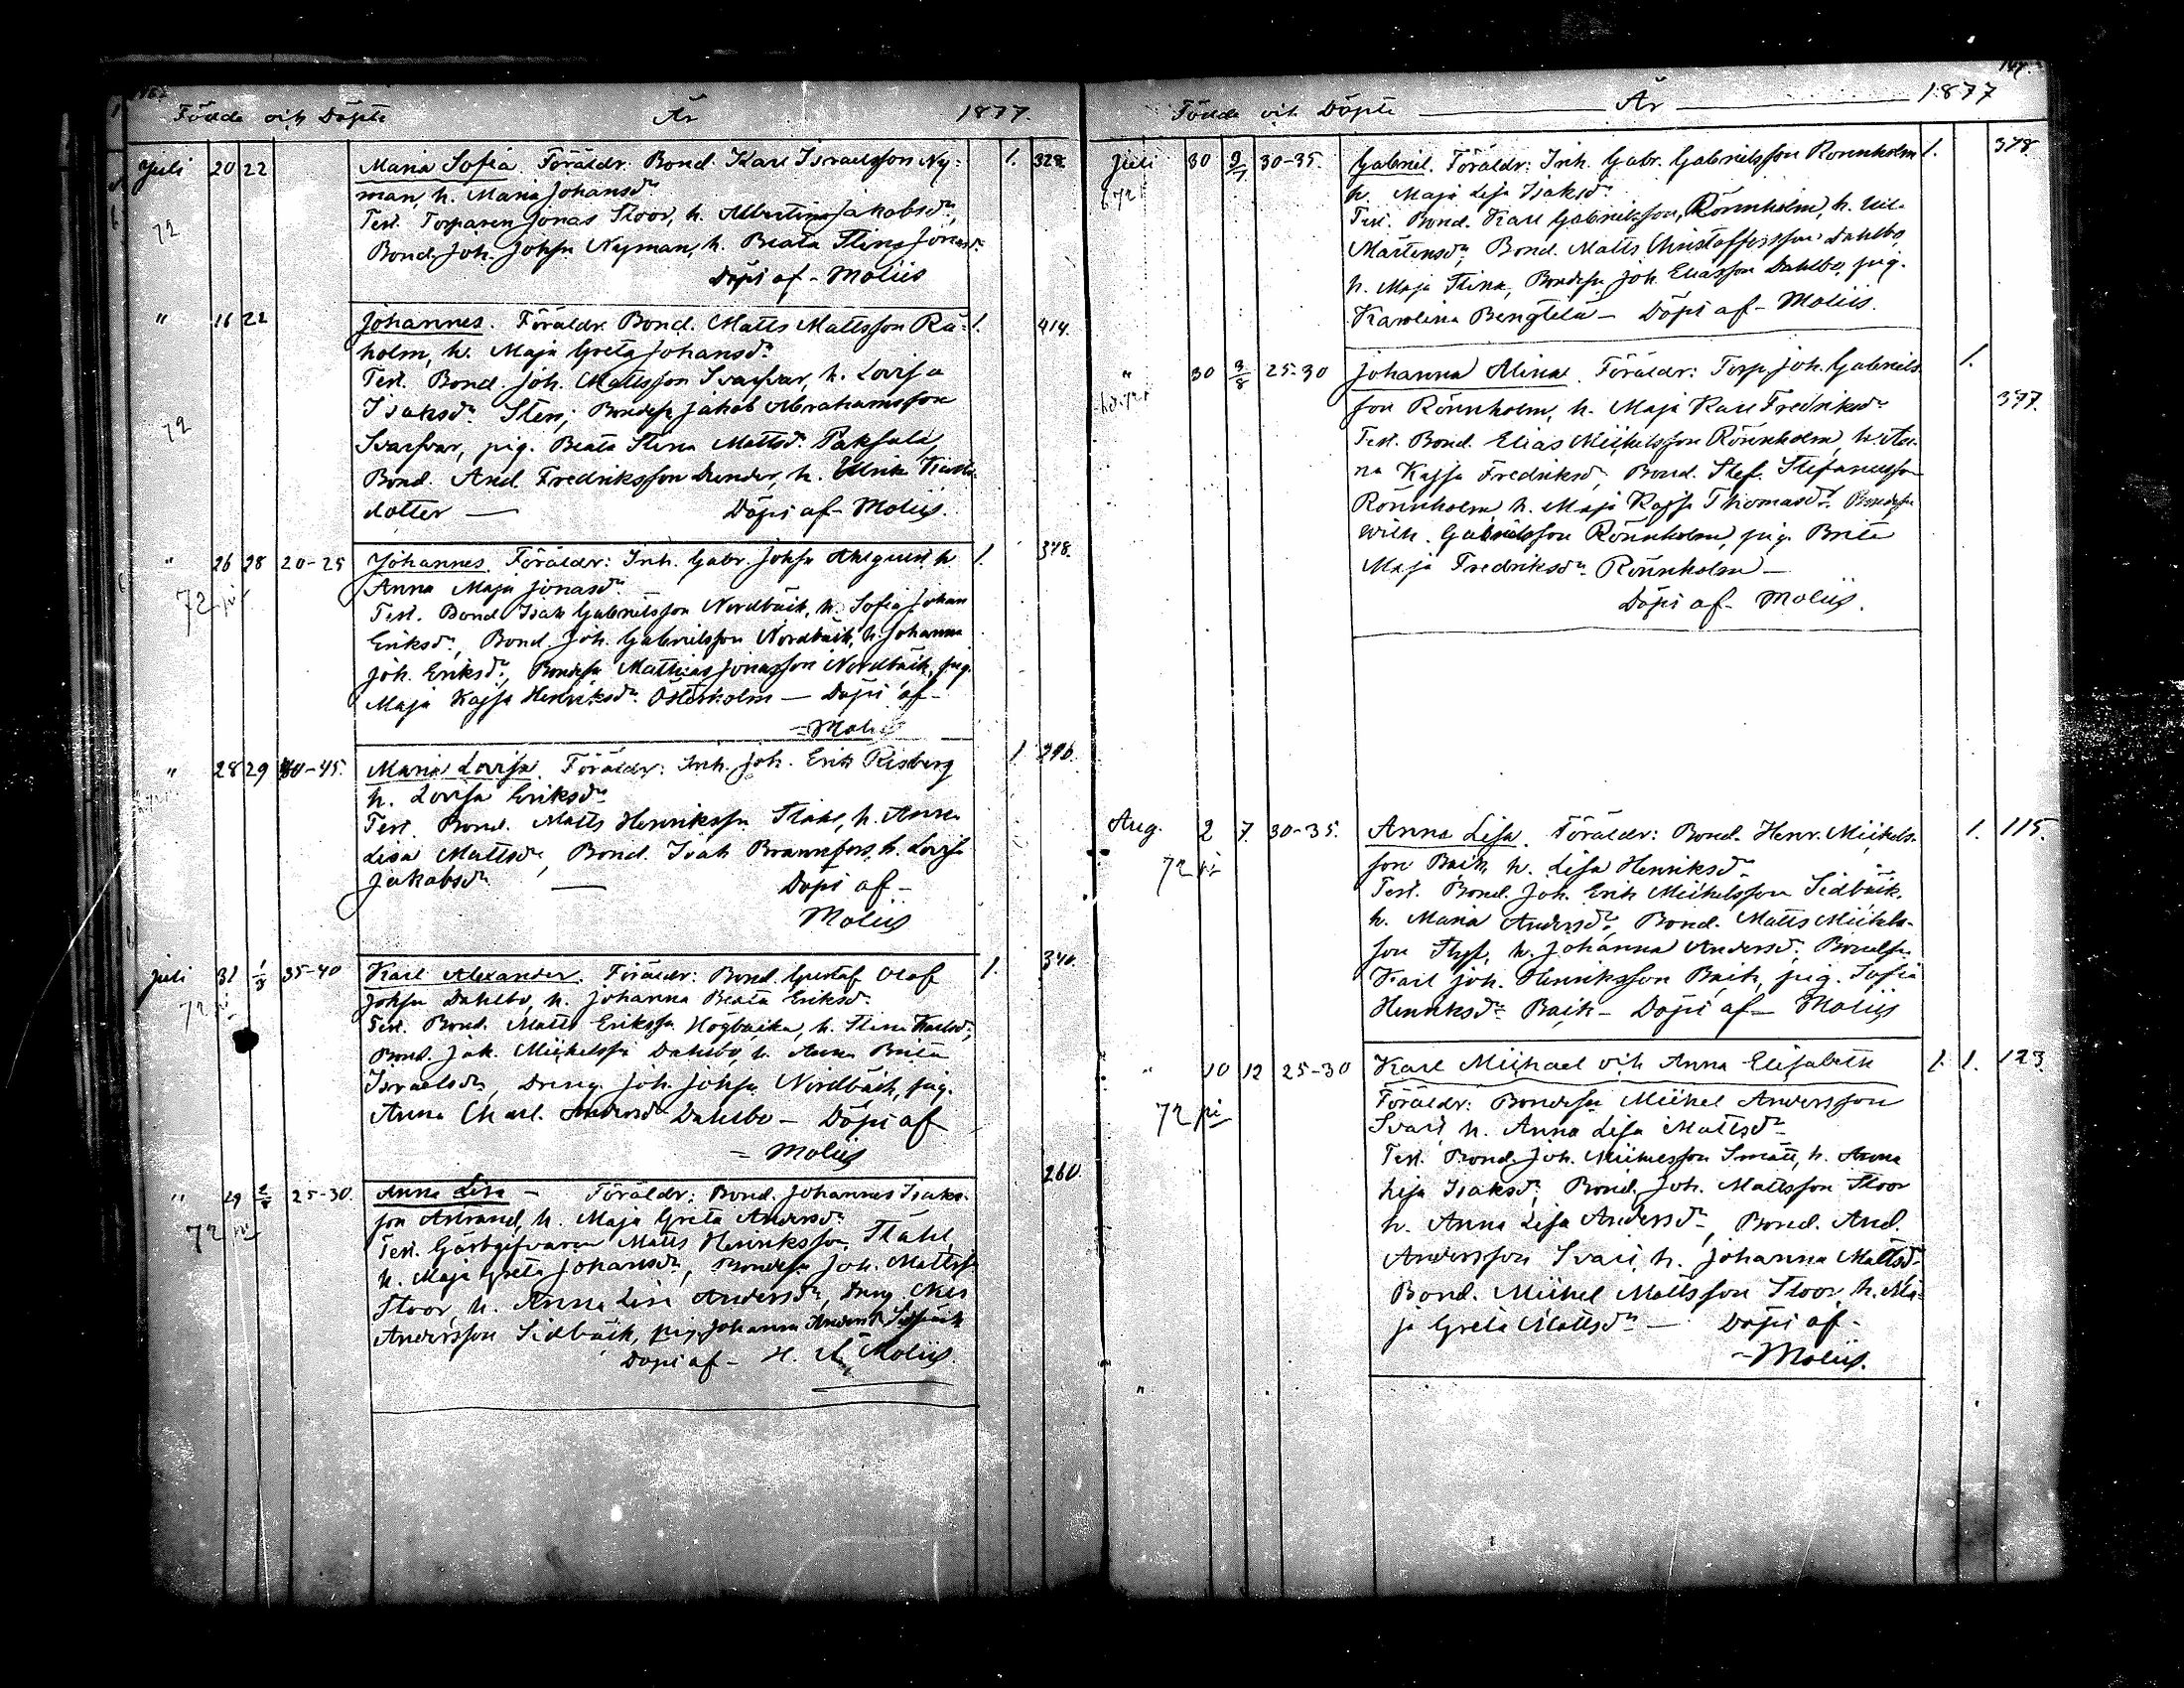 Födde och Döpte År 1877.
Juli 20 22 Maria Sofia. Föräldr. Bond. Karl Israelsson Ny- 1. 328.
man, h. Maria Johansdr
72 Test. Torparen Jonas Stoor, h. Albertina Jakobsdr,
Bond. Joh. Johss Nyman, h. Beata Stina Jonasdr
Döpt af - Moliis
" 16 22 Johannes. Föräldr. Bond. Matts Mattsson Rå- 1. 414.
holm, h. Maja Greta Johansdr
Test. Bond. Joh. Mattsson Svarfvar, h. Lovisa
72 Isaksdr Sten; Bondess Jakob Abrahamsson
Svarfvar, pig. Beata Stina Mattsdr Paksula,
Bond. And. Fredriksson Dunder, h. Ulrika
dotter — Döpt af - Moliis.
" 26 28 20-25 Johannes. Föräldr: Inh. Gabr. Johss Ahlquist h 1. 378.
72 Anna Maja Jonasdr
Test. Bond Isak Gabrielsson Nordbäck, h. Sofia Johan
Eriksdr, Bond. Joh. Gabrielsson Nordbäck, h. Johanna
Joh. Eriksdr, Bondess Matthias Jonasson Nordbäck, pig.
Maja Kajsa Henriksdr Österholm — Döpt af -
- Moliis
" 28 29 40-45. Maria Lovisa. Föräldr: Inh. Joh. Erik Risberg 1 296.
h. Lovisa Eriksdr
Test. Bond. Matts Henriksson h. Anna
Lisa Mattsdr, Bond. Isak Brannfors, h. Lovisa
Jakobsdr — Döpt af -
Moliis
Juli 31 1/8 35-40 Karl Alexander. Föräldr: Bond. Gustaf Olof 1. 340.
72 Johss Dahlbo, h. Johanna Beata Eriksdr
Test. Bond. Matts Erikss Högbacka, h. Stina Karlsdr,
Bond. Jak. Mickelss Dahlbo, h. Anna Brita
Israelsdr, Dreng. Joh. Johss Nordbäck, pig.
Anna Charl. Andersdr Dahlbo — Döpt af
- Moliis
" 29 2/8 25-30. Anna Lisa — Föräldr: Bond. Johannes Isaks- 260.
son Åstrand, h. Maja Greta Andersdr
72 Test. Gästgifvaren Matts Henriksson Ståhl,
h. Maja Greta Johansdr, Bondess Joh. Mattss
Stoor, h. Anna Lisa Andersdr, Dreng
Andersson Sidbäck, pig. Johanna Andersdr Sidbäck
Döpt af - H. A. Moliis.
Födde och Döpte — År — 1877
Juli 30 30-35. Gabriel. Föräldr: Inh. Gabr. Gabrielsson Rönnholm 1. 378
72 h. Maja Lisa Isaksdr
Test. Bond. Karl Gabrielsson Rönnholm, h. Ul.
Mårtensdr, Bond. Matts Christoffersson Dahlbo,
h. Maja Stina, Bondess Joh. Eliasson Dahlbo, pig.
Karolina Bengtelä — Döpt af - Moliis.
" 30 3/8 25-30 Johanna Alina. Föräldr: Torp. Joh. Gabriels- 1. 377.
son Rönnholm, h. Maja Kari Fredriksdr
Test. Bond. Elias Mickelsson Rönnholm, h. An-
na Kajsa Fredriksdr, Bond. Stef. Stefansson
Rönnholm h. Maja Kajsa Thomasdr Bondess
Wilh. Gabrielsson Rönnholm, pig. Brita
Maja Fredriksdr Rönnholm —
Döpt af - Moliis.
Aug. 2 7. 30-35. Anna Lisa. Föräldr: Bond. Henr. Mickels- 1. 115.
72 son Back, h. Lisa Henriksdr
Test. Bond. Joh. Erik Mickelsson Sidbäck,
h. Maria Andersdr, Bond. Matts Mickels-
son h. Johanna Andersdr, Bondess
Karl Joh. Henriksson Back, pig. Sofia
Henriksdr Back — Döpt af — Moliis
" 10 12 25-30 Karl Mickael och Anna Elisabeth 1. 1. 123.
72 Föräldr: Bondess Mickel Andersson
Svars h. Anna Lisa Mattsdr
Test. Bond. Joh. Mickelsson Smått, h. Anna
Lisa Isaksdr, Bond. Joh. Mattsson Stoor
h. Anna Lisa Andersdr, Bond. And.
Andersson Svars h. Johanna Mattsdr
Bond. Mickel Mattsson Stoor, h. Ma-
ja Greta Mattsdr — Döpt af -
- Moliis.
"